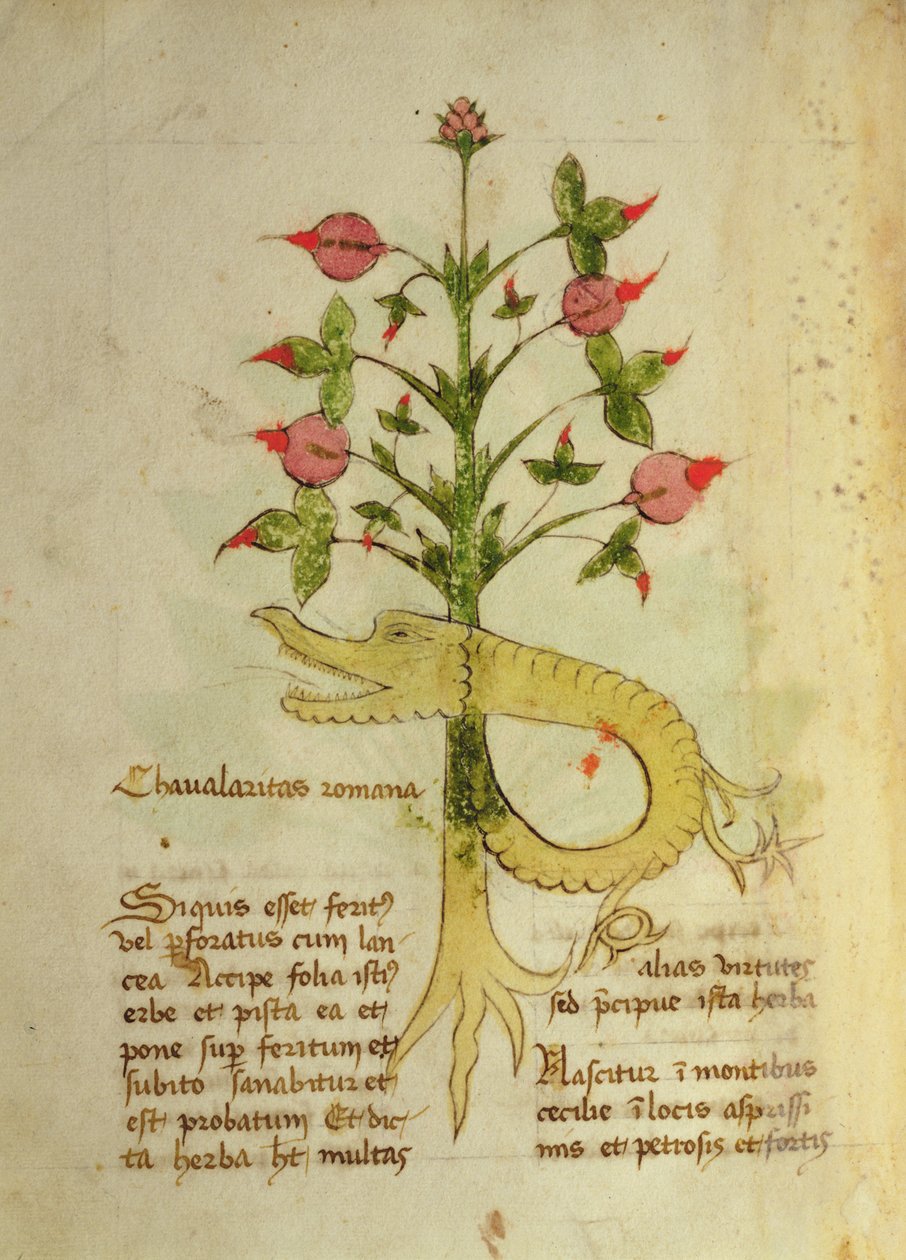 Chavalaritas romana
Siquis esset feritꝰ
vel ꝑforatus cum lan
cea Accipe folia istiꝰ
erbe et pista ea et
pone suꝑ feritum et
subito sanabitur et
est probatum Et dic
ta herba ħt multas
alias virtutes
sed p̄cipue ista herba
Nascitur ī montibus
cecilie ī locis asprissi
mis et petrosis et fortis